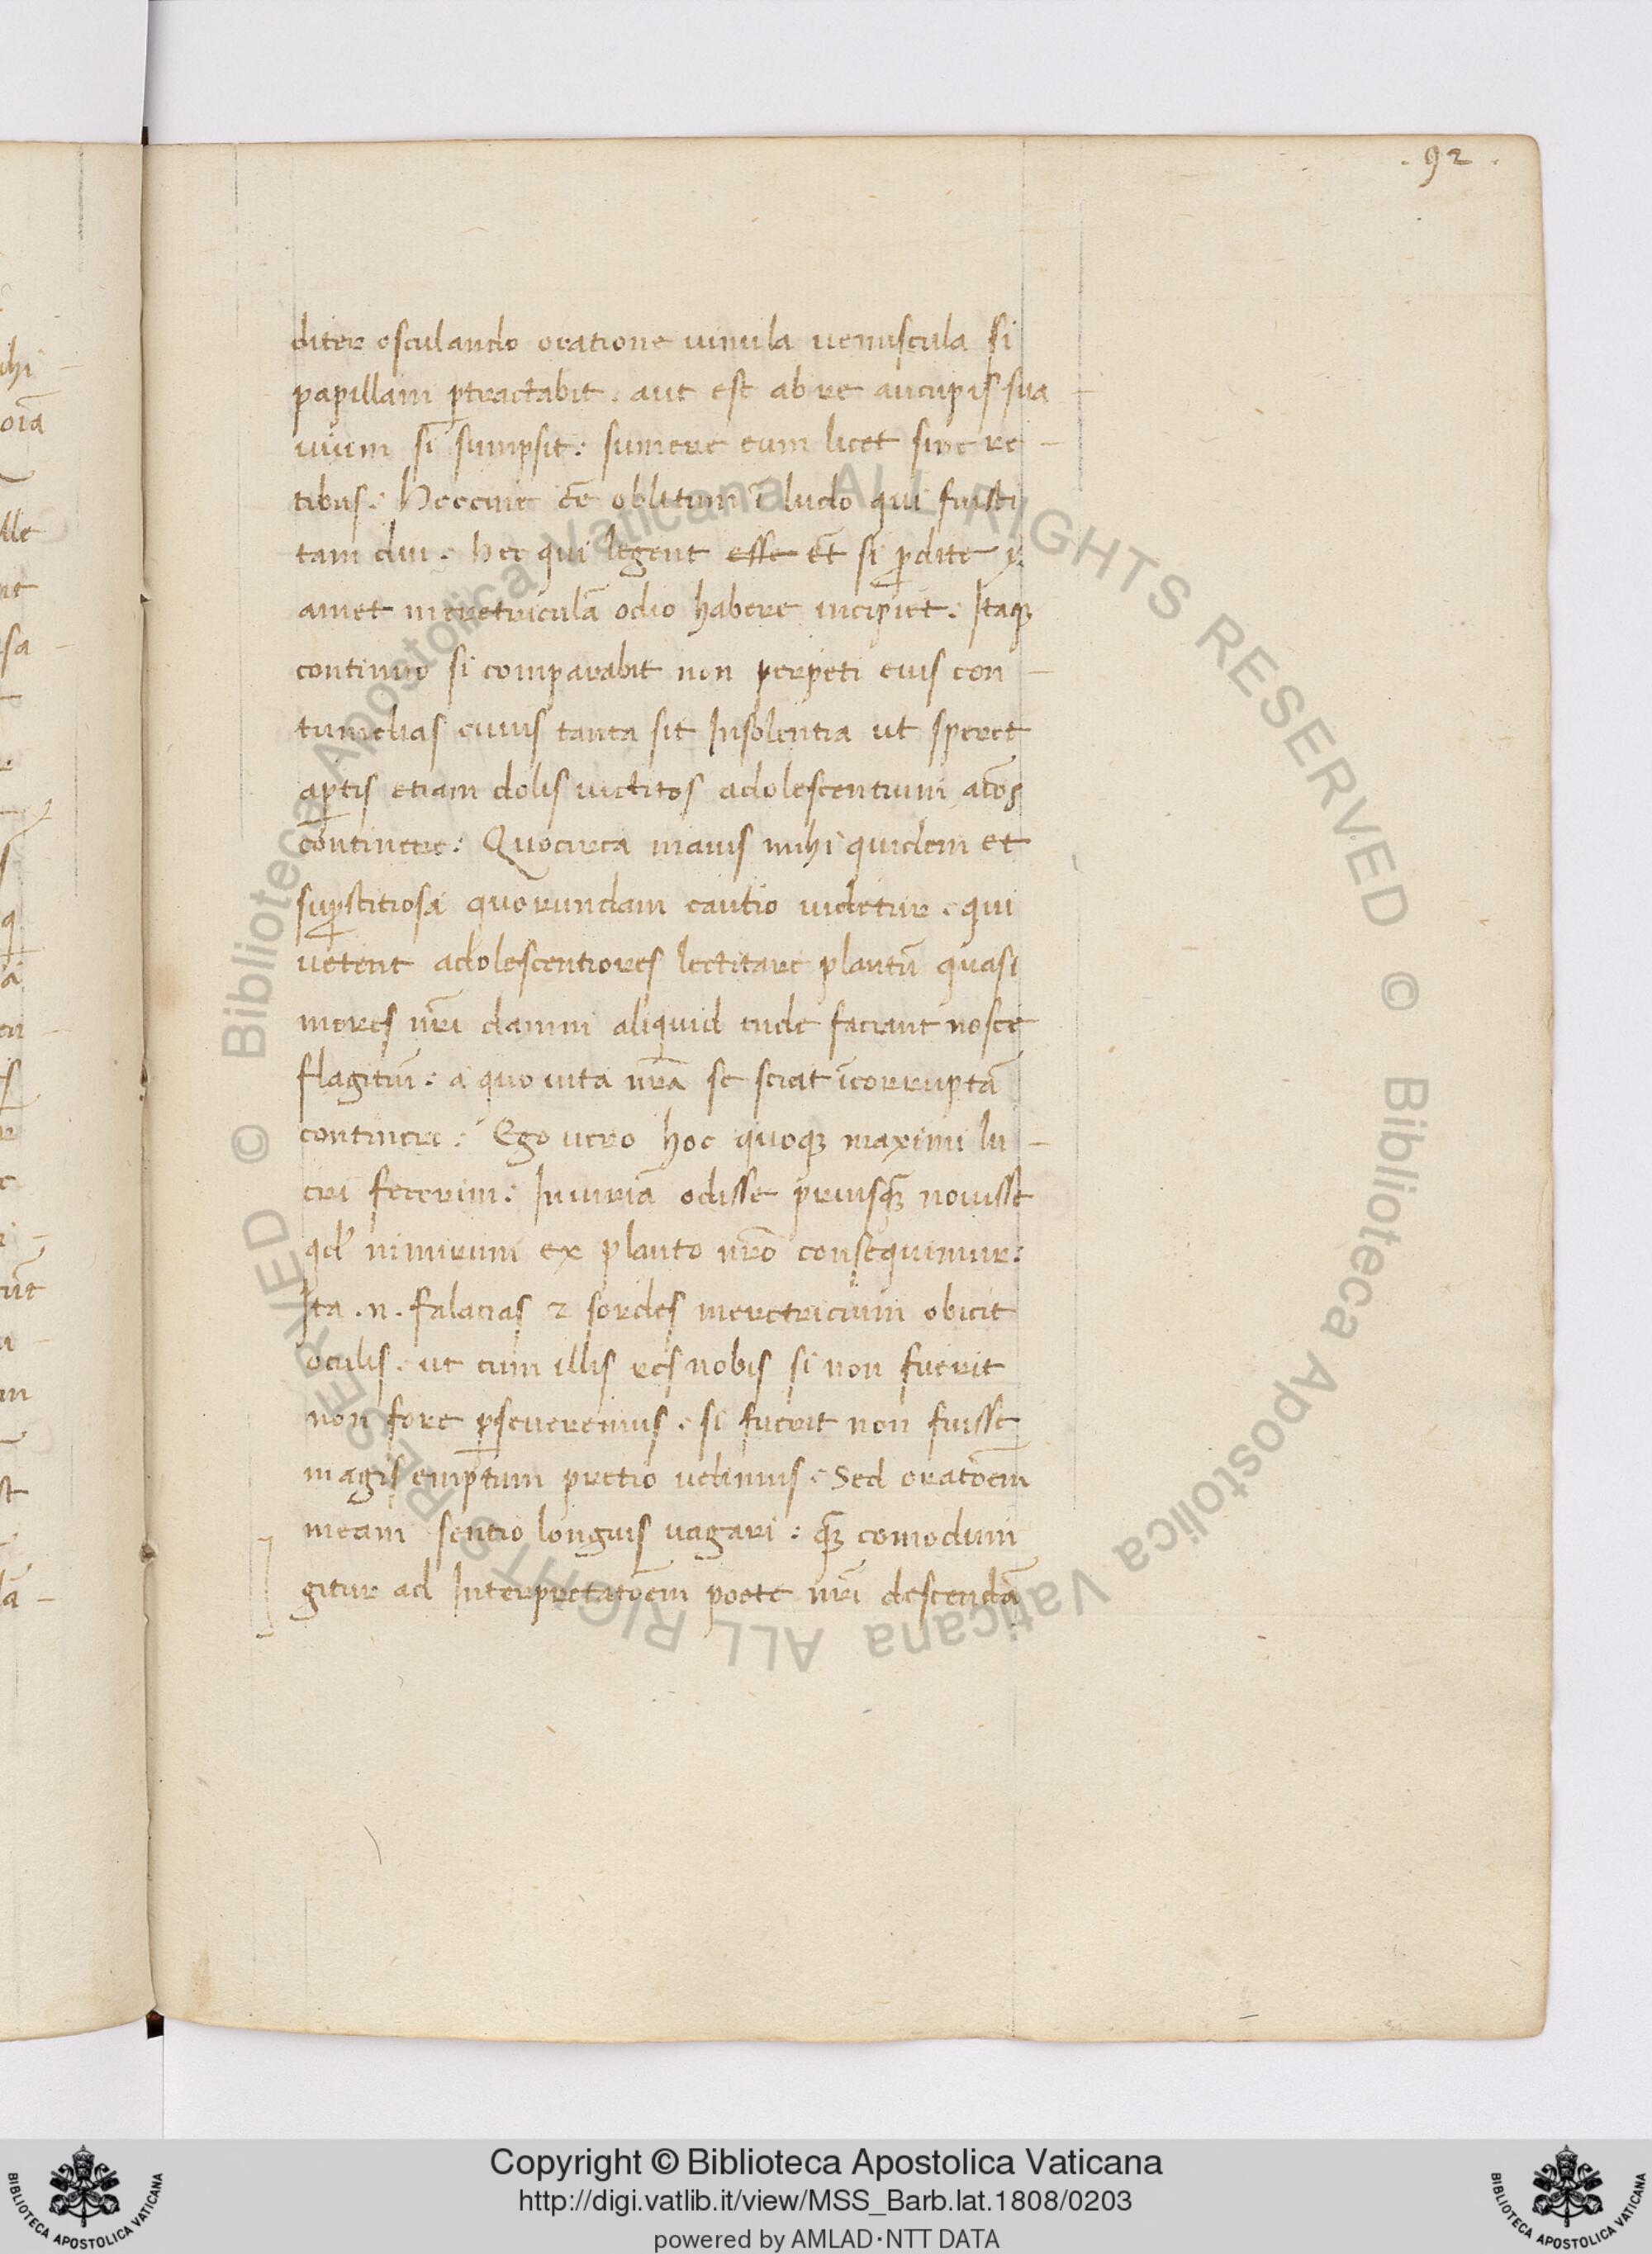 . 92 .
diter osculando oratione uinula uenuscula si
papillam ptractabit. aut est ab re aucupis sua
uium si sumpsit: sumere eum licet sine re
tibus: Hoccine eē oblitum ī ludo qui fuisti
tam diu. hec qui legent esse et̄ si pdite
amet meretriculā odio habere incipiet: Itaq
continuo si comparabit non perpeti eius con
tumelias cuius tanta sit Insolentia ut speret
aptis etiam dolis uictitos adolescentium
continere: Quocirca maius mihi quidem et
supstitiosa quorundam cautio uidetur. qui
uetent adolescentiores lectitare plautū quasi
mores nr̄i damni aliquid inde faciant nosce
flagitiū: a quo uita nr̄a se sciat īcorruptā
continere: Ego uero hoc quoq maximi lu
cri fecerim: Iniuriā odisse priusq̄ nouisse
qd' nimirum ex plauto nr̄o consequimur:
Ita .n. falacias 2 sordes meretricium obicit
oculis. ut cum illis res nobis si non fuerit
non fore pseueremus. si fuerit non fuisse
magis emptum pretio uelimus. Sed oratōem
meam sentio longius uagari: q̄ comodum
gitur ad Interpretatōem poete nr̄i descendā
© Biblioteca Apostolica Vaticana ALL RIGHTS RESERVED © Biblioteca Apostolica Vaticana ALL RIGHTS RESERVED
Copyright © Biblioteca Apostolica Vaticana
http://digi.vatlib.it/view/MSS_Barb.lat.1808/0203
powered by AMLAD·NTT DATA
BIBLIOTECA APOSTOLICA VATICANA
BIBLIOTECA APOSTOLICA VATICANA